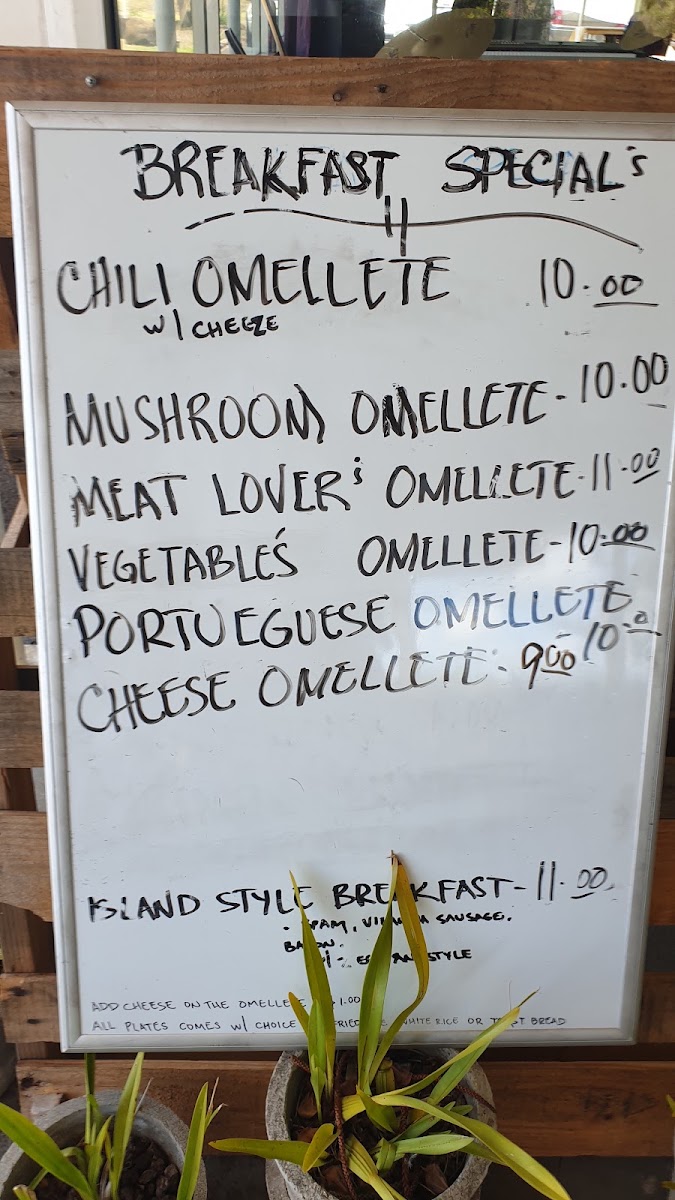 BREAKFAST SPECIAL'S
CHILI OMELLETE 10.00
W/ CHEEZE
MUSHROOM OMELLETE - 10.00
MEAT LOVER'S OMELLETE - 11.00
VEGETABLE'S OMELLETE - 10.00
PORTUEGUESE OMELLETE
10.0
CHEESE OMELLETE - 900
ISLAND STYLE BREAKFAST - 11.00
SPAM, SAUSAGE.
BACON.
STYLE
ADD CHEESE ON THE OMELLETE 1.00
ALL PLATES COMES W/ CHOICE FRIED WHITE RICE OR BREAD